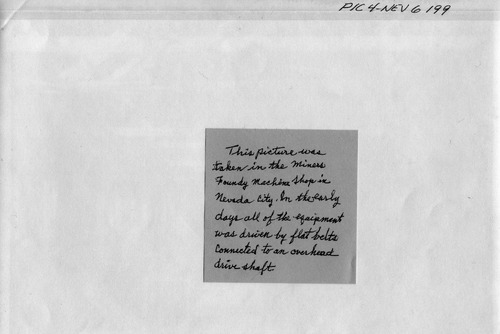 PIC 4-NEV 6 199
This picture was
taken in the Miners
Foundy Machine Shop in
Nevada City. In the early
days all of the equipment
was driven by flat belts
connected to an overhead
drive shaft.